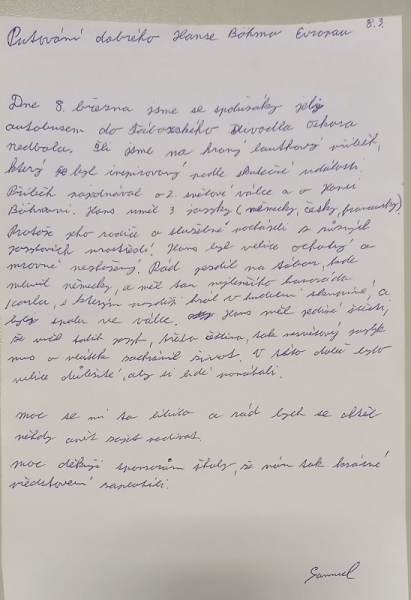 Putování dobrého Hanse Böhma Evropou 8.3.
Dne 8. března jsme se spolužáky jeli
autobusem do Táborského divadla Oskara
Nedbala. Šli jsme na hraný loutkový příběh,
který byl inspirovaný podle skutečné události.
Příběh pojednával o 2. světové válce a o Hansi
Böhmovi. Hans uměl 3 jazyky (německy, česky, francouzsky).
Protože jeho rodiče a služebné pocházeli z různých
jazykových prostředí. Hans byl velice ochotný a
mravně Rád jezdil na tábor, kde
mluvil německy, a měl tam nejlepšího kamaráda
Carla, s kterým později hrál v hudební skupině, a
byli spolu ve válce. Hans měl jediné štěstí,
že uměl tolik jazyků, třeba čeština, tak
mu v vlásek zachránil život. V této době bylo
velice důležité, aby si lidé pomáhali.
moc se mi ta líbila a rád bych se chtěl
někdy opět zajet podívat.
moc děkuji sponzorům školy, že nám tak krásné
představení zaplatili.
Samuel